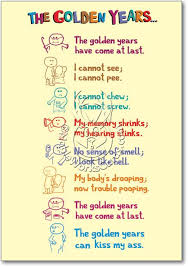 THE GOLDEN YEARS...
The golden years
have come at last.
I cannot see;
I cannot pee.
I cannot chew;
I cannot screw.
My memory shrinks;
my hearing stinks.
No sense of smell;
I look like hell.
My body's drooping;
now trouble pooping.
The golden years
have come at last.
The golden years
can kiss my ass.